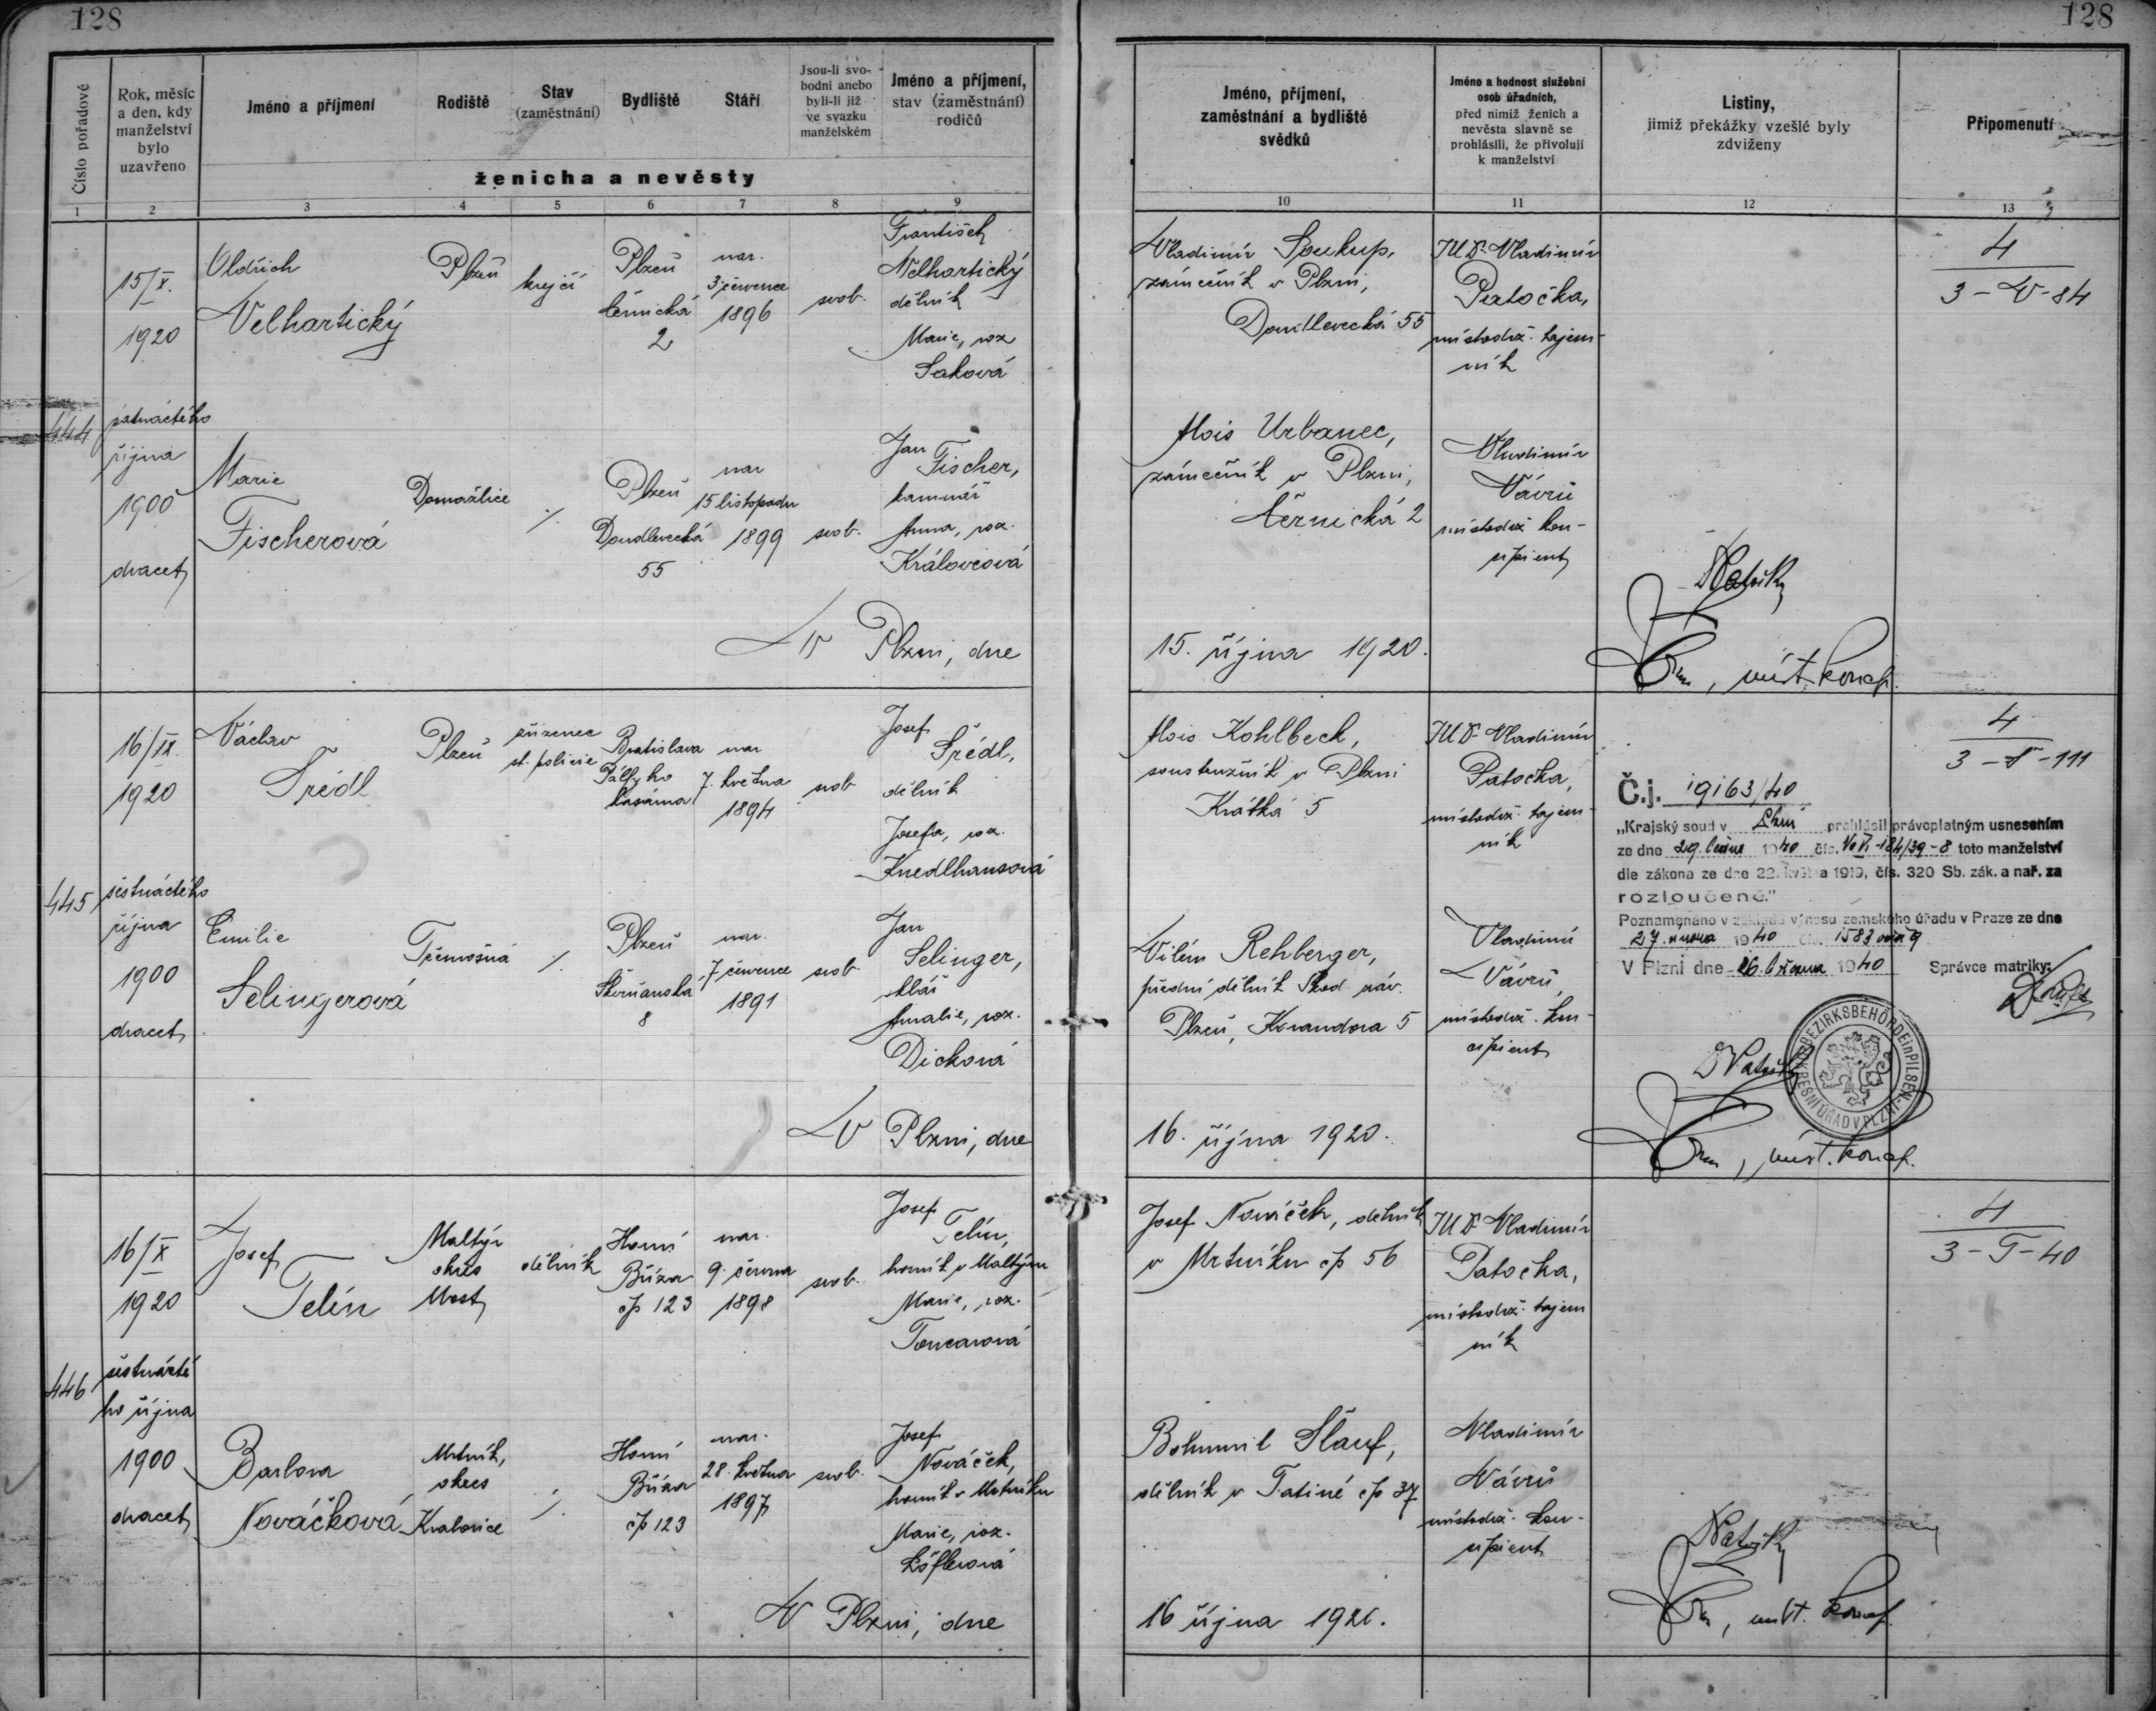 128
128
Číslo pořadové
Rok, měsíc
a den, kdy
manželství
bylo
uzavřeno
Jméno a příjmení
Rodiště
Stav
(zaměstnání)
Bydliště
Stáří
Jsou-li svo-
bodni anebo
byli-li již
ve svazku
manželském
Jméno a příjmení,
stav (zaměstnání)
rodičů
ženicha a nevěsty
1 2 3 4 5 6 7 8 9
Jméno, příjmení,
zaměstnání a bydliště
svědků
Jméno a hodnost služební
osob úřadních,
před nimiž ženich a
nevěsta slavně se
prohlásili, že přivolují
k manželství
Listiny,
jimiž překážky vzešlé byly
zdviženy
Připomenutí
10 11 12 13
444
15/X.
1920
patnáctého
října
1900
dvacet
Oldřich
Velhartický
Plzeň
krejčí
Plzeň
Černická
2
nar.
3 července
1896
svob.
František
Velhartický
dělník
Marie, roz
Saková
Marie
Fischerová
Domažlice
./.
Plzeň
Doudlevecká
55
nar
15 listopadu
1899
svob.
Jan
Fischer,
Anna, roz.
Královcová
V Plzni, dne
Vladimír Soukup,
zámečník v Plzni,
Doudlevecká 55
JUDr. Vladimír
Patočka,
místodrž. tajem-
ník
4
3 - V - 84
Alois Urbanec,
zámečník v Plzni,
Černická 2
Vladimír
Vávrů
místodrž kon-
cipient
15. října 1920.
, míst. koncip.
445
16/X.
1920
šestnáctého
října
1900
dvacet
Václav
Srédl
Plzeň
zřízenec
st. policie
Bratislava
Pálffyho
kasárna
nar
7. května
1894
svob
Josef
Srédl,
dělník
Josefa, roz.
Knedlhansová
Emilie
Selingerová
Třemošná
./.
Plzeň
Skvrňanská
8
nar.
7 července
1891
svob.
Jan
Selinger,
sklář
Amalie, roz.
Dicková
V Plzni, dne
Alois Kohlbeck,
soustružník v Plzni
Krátká 5
JUDr. Vladimír
Patočka,
místodrž. tajem-
ník
4
3 - S - 111
Č.j. 19163/40
„Krajský soud v Plzni prohlásil právoplatným usnesením
ze dne 29. 1940 čís. 184/39-8 toto manželství
dle zákona ze dne 22. května 1919, čís. 320 Sb. zák. a nař. za
rozloučené."
Poznamenáno v základě výnosu zemského úřadu v Praze ze dne
27. února 1940 čís. 1583
V Plzni dne 26. března 1940 Správce matriky:
Vilém Rehberger,
přední dělník Škod. záv.
Plzeň, Korandova 5
Vladimír
Vávrů,
místodrž. kon-
cipient
BEZIRKSBEHÖRDE in PILSEN
OKRESNÍ ÚŘAD V PLZNI
16. října 1920.
, míst. koncip.
446
16/X
1920
šestnácté
ho října
1900
dvacet
Josef
Telín
Maltýř
okres
Most
dělník
Horní
Bříza
čp 123
nar.
9. června
1898
svob.
Josef
Telín,
horník v
Marie, roz.
Toncarová
Barbora
Nováčková
Mrtník,
okres
Kralovice
./.
Horní
Bříza
čp 123
nar.
28. května
1897
svob.
Josef
Nováček,
horník v Mrtníku
Marie, roz.
Löflerová
V Plzni, dne
Josef Nováček, dělník
v Mrtníku čp 56
JUDr. Vladimír
Patočka,
místodrž. tajem
ník
4
3 - T - 40
Bohumil Šlauf,
dělník v Tatiné čp 37
Vladimír
Vávrů
místodrž. kon-
cipient
16 října 1920.
, míst. koncip.